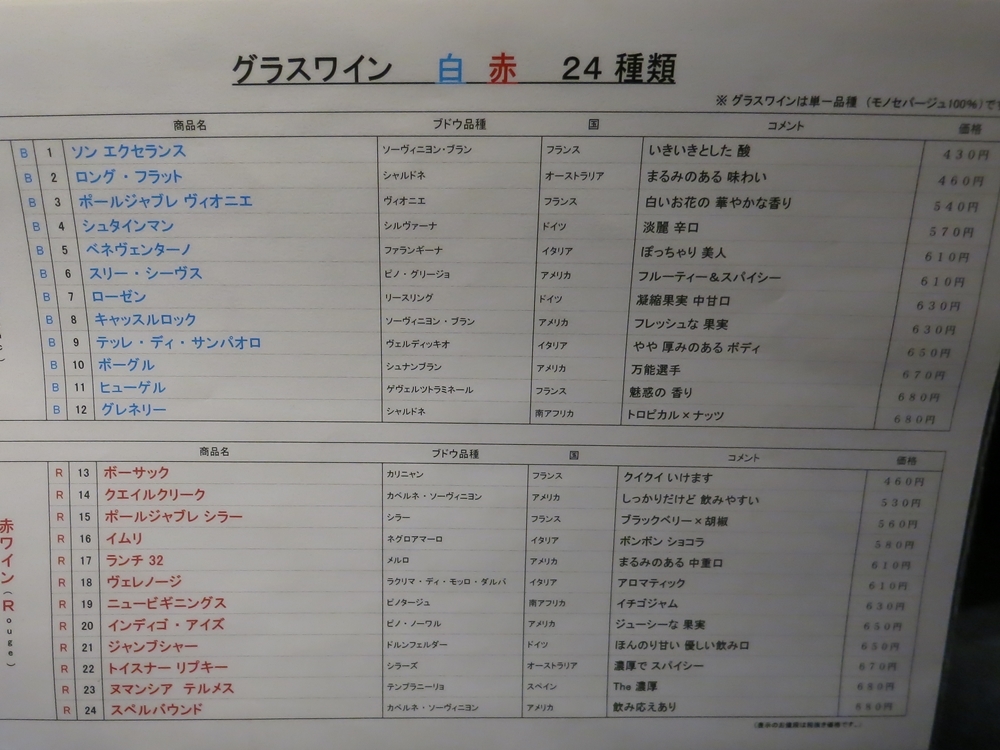 グラスワイン 白 赤 24 種類
※ グラスワインは単一品種 (モノセパージュ100%) で
商品名 ブドウ品種 国 コメント 価格
B 1 ソン エクセランス ソーヴィニヨン・ブラン フランス いきいきとした 酸 430円
B 2 ロング・フラット シャルドネ オーストラリア まるみのある 味わい 460円
B 3 ポールジャブレ ヴィオニエ ヴィオニエ フランス 白いお花の 華やかな香り 540円
B 4 シュタインマン シルヴァーナ ドイツ 淡麗 辛口 570円
B 5 ベネヴェンターノ ファランギーナ イタリア ぽっちゃり 美人 610円
B 6 スリー・シーヴス ピノ・グリージョ アメリカ フルーティー&スパイシー 610円
B 7 ローゼン リースリング ドイツ 凝縮果実 中甘口 630円
B 8 キャッスルロック ソーヴィニヨン・ブラン アメリカ フレッシュな 果実 630円
B 9 テッレ・ディ・サンパオロ ヴェルディッキオ イタリア やや 厚みのある ボディ 650円
B 10 ボーグル シュナンブラン アメリカ 万能選手 670円
B 11 ヒューゲル ゲヴェルツトラミネール フランス 魅惑の 香り 680円
B 12 グレネリー シャルドネ 南アフリカ トロピカル×ナッツ 680円
商品名 ブドウ品種 国 コメント 価格
赤ワイン(Rouge)
R 13 ボーサック カリニャン フランス クイクイ いけます 460円
R 14 クエイルクリーク カベルネ・ソーヴィニヨン アメリカ しっかりだけど 飲みやすい 530円
R 15 ポールジャブレ シラー シラー フランス ブラックベリー×胡椒 560円
R 16 イムリ ネグロアマーロ イタリア ボンボン ショコラ 580円
R 17 ランチ 32 メルロ アメリカ まるみのある 中重口 610円
R 18 ヴェレノージ ラクリマ・ディ・モッロ・ダルバ イタリア アロマティック 610円
R 19 ニュービギニングス ピノタージュ 南アフリカ イチゴジャム 630円
R 20 インディゴ・アイズ ピノ・ノワール アメリカ ジューシーな 果実 650円
R 21 ジャンブシャー ドルンフェルダー ドイツ ほんのり甘い 優しい飲み口 650円
R 22 トイスナー リブキー シラーズ オーストラリア 濃厚で スパイシー 670円
R 23 ヌマンシア テルメス テンプラニーリョ スペイン The 濃厚 680円
R 24 スペルバウンド カベルネ・ソーヴィニヨン アメリカ 飲み応えあり 680円
(表示のお値段は税抜き価格です。)